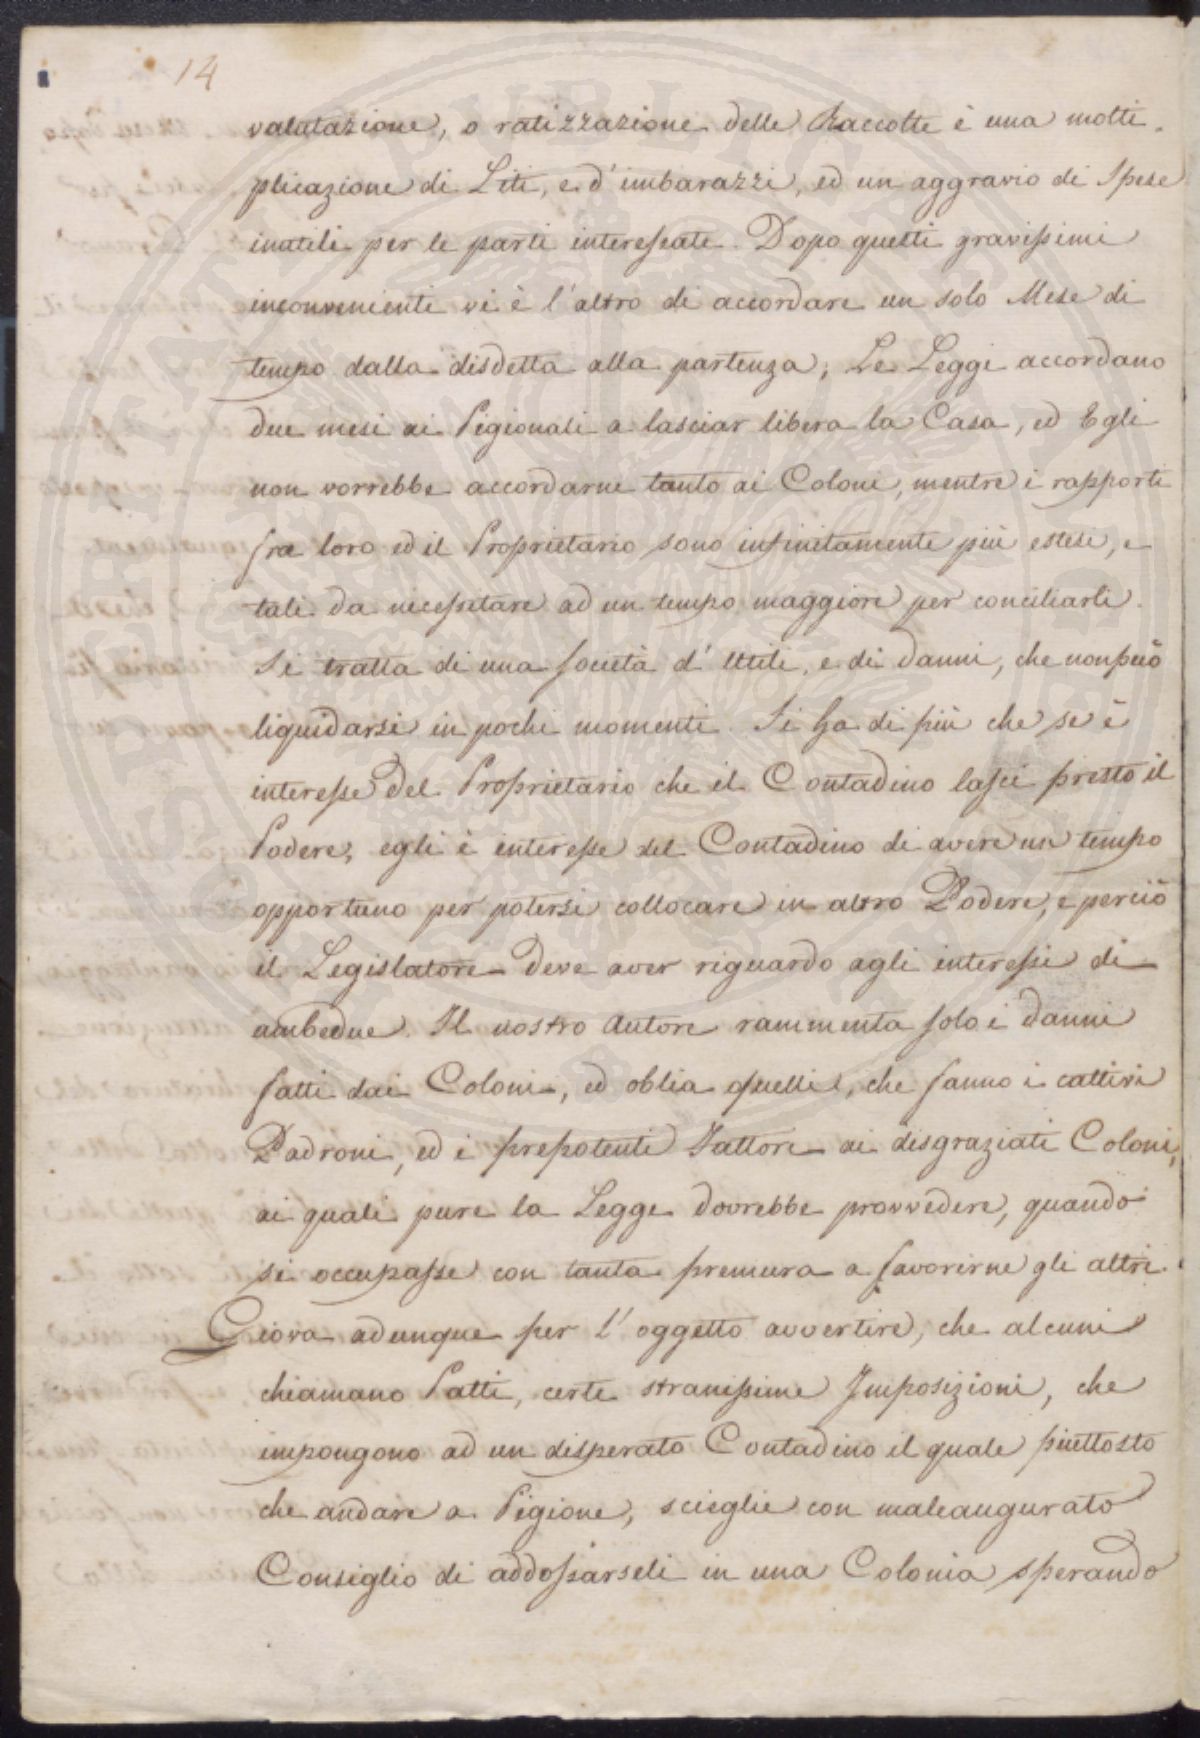 14
valutazione, o ratizzazione delle Raccolte è una molti-
plicazione di Liti, e d'imbarazzi, ed un aggravio di Spese
inutili per le parti interessate. Dopo questi gravissimi
inconvenienti vi è l'altro di accordare un solo Mese di
tempo dalla disdetta alla partenza; Le Leggi accordano
due mesi ai Pigionali a lasciar libera la Casa, ed Egli
non vorrebbe accordarne tanto ai Coloni, mentre i rapporti
fra loro ed il Proprietario sono infinitamente più estesi, e
tali da necessitare ad un tempo maggiore per conciliarli.
Si tratta di una società d'Utili, e di danni, che non può
liquidarsi in pochi momenti. Si ha di più che se è
interesse del Proprietario che il Contadino lasci presto il
Podere, egli è interesse del Contadino di avere un tempo
opportuno per potersi collocare in altro Podere, e perciò
il Legislatore deve aver riguardo agli interessi di
ambedue. Il nostro Autore rammenta solo i danni
fatti dai Coloni, ed oblia quelli, che fanno i cattivi
Padroni, ed i prepotenti Fattori ai disgraziati Coloni,
ai quali pure la Legge dovrebbe provvedere, quando
si occupasse con tanta premura a favorirne gli altri.
Giova adunque per l'oggetto avvertire, che alcuni
chiamano Patti, certe stranissime Imposizioni, che
impongono ad un disperato Contadino il quale piuttosto
che andare a Pigione, scieglie con maleaugurato
Consiglio di addossarseli in una Colonia sperando